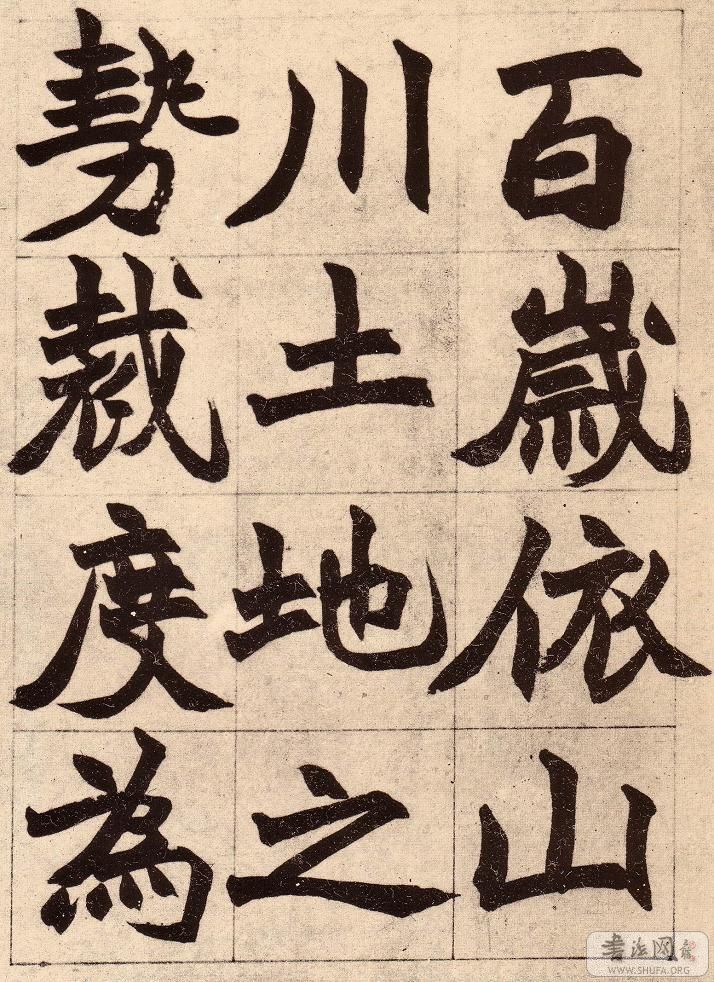 百歳依山
川土地之
勢裁度為
书法网
WWW.SHUFA.ORG